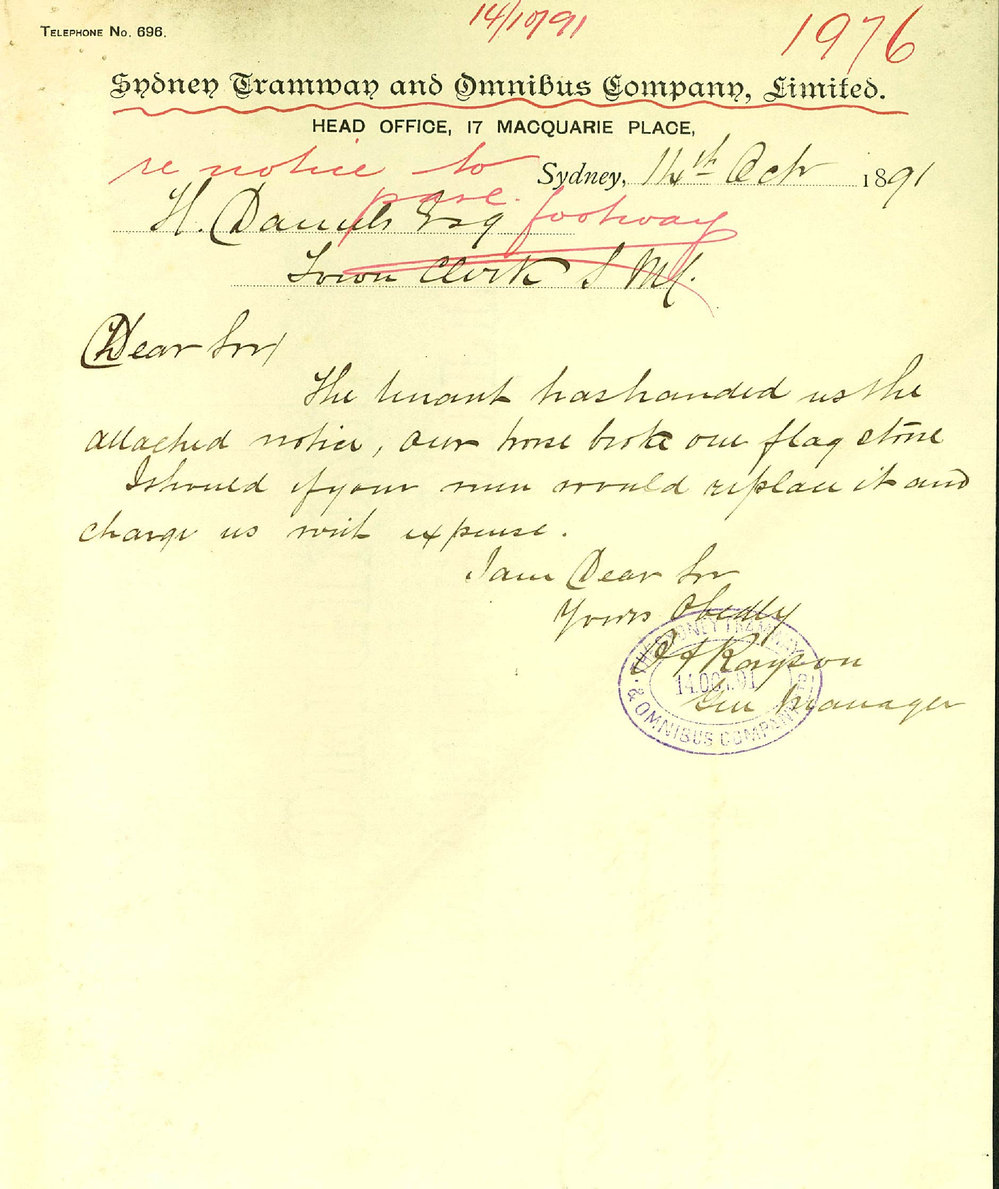 14/10/91
1976
TELEPHONE NO. 696.
Sydney Tramway and Omnibus Company, Limited.
HEAD OFFICE, 17 MACQUARIE PLACE,
re notice to
pave footway
Sydney, 14th Oct 1891
H. Daniels Esq
Town Clerk S M C.
Dear Sir/
The tenant has handed us the
attached notice, our horse broke one flag stone
I should if your men would replace it and
charge us with expense.
I am Dear Sir
Yours Obedly
Rayson
Gen Manager
THE SYDNEY TRAMWAY
14.OCT.91
& OMNIBUS COMPANY